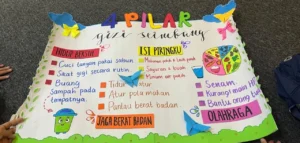 4 PILAR
gizi seimbang
HIDUP BERSIH
Cuci tangan pakai sabun
Sikat gigi secara rutin
Buang
Sampah pada
tempatnya.
ISI PIRINGKU
Tidur
Atur pola makan
Pantau berat badan
JAGA BERAT BADAN
Senam
Kurangi main
Bantu orang
OLAHRAGA